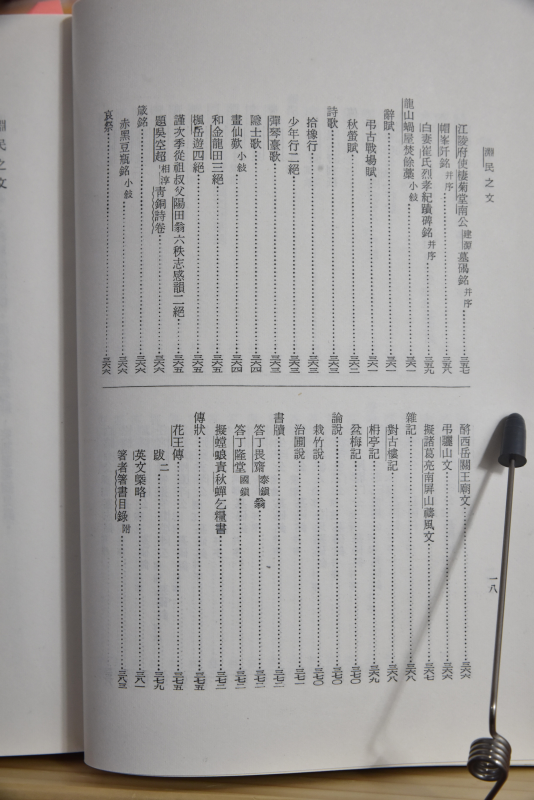 淵民之文
江陵府使棲菊堂南公建潤墓碣銘并序……三五七
帽峯阡銘并序……三五八
白妻崔氏烈孝紀蹟碑銘并序……三五九
龍山蝸屋焚餘藁小敍……三六一
辭賦……三六一
弔古戰場賦……三六一
秋螢賦……三六二
詩歌……三六三
拾橡行……三六三
少年行二絕……三六三
彈琴臺歌……三六三
隱士歌……三六四
畫仙歎小敍……三六四
和金龍田三絕……三六五
楓岳遊四絕……三六五
謹次季從祖叔父陽田翁六秩志感韻二絕……三六五
題吳空超相淳靑銅詩卷……三六六
箴銘……三六六
赤黑豆瓶銘小敍……三六六
哀祭……三六六
酹西岳關王廟文……三六六
弔驪山文……三六六
擬諸葛亮南屛山禱風文……三六七
雜記……三六八
對古樓記……三六八
柟亭記……三六九
盆梅記……三七〇
論說……三七〇
栽竹說……三七〇
治圃說……三七一
書牘……三七二
答丁畏齋泰鎭翁……三七二
答丁隆堂國鎭……三七二
擬螳蜋責秋蟬乞糧書……三七三
傳狀……三七五
花王傳……三七五
跋二……三七九
英文槩略……三八一
著者著書目錄附……三八三
一八
淵民之文